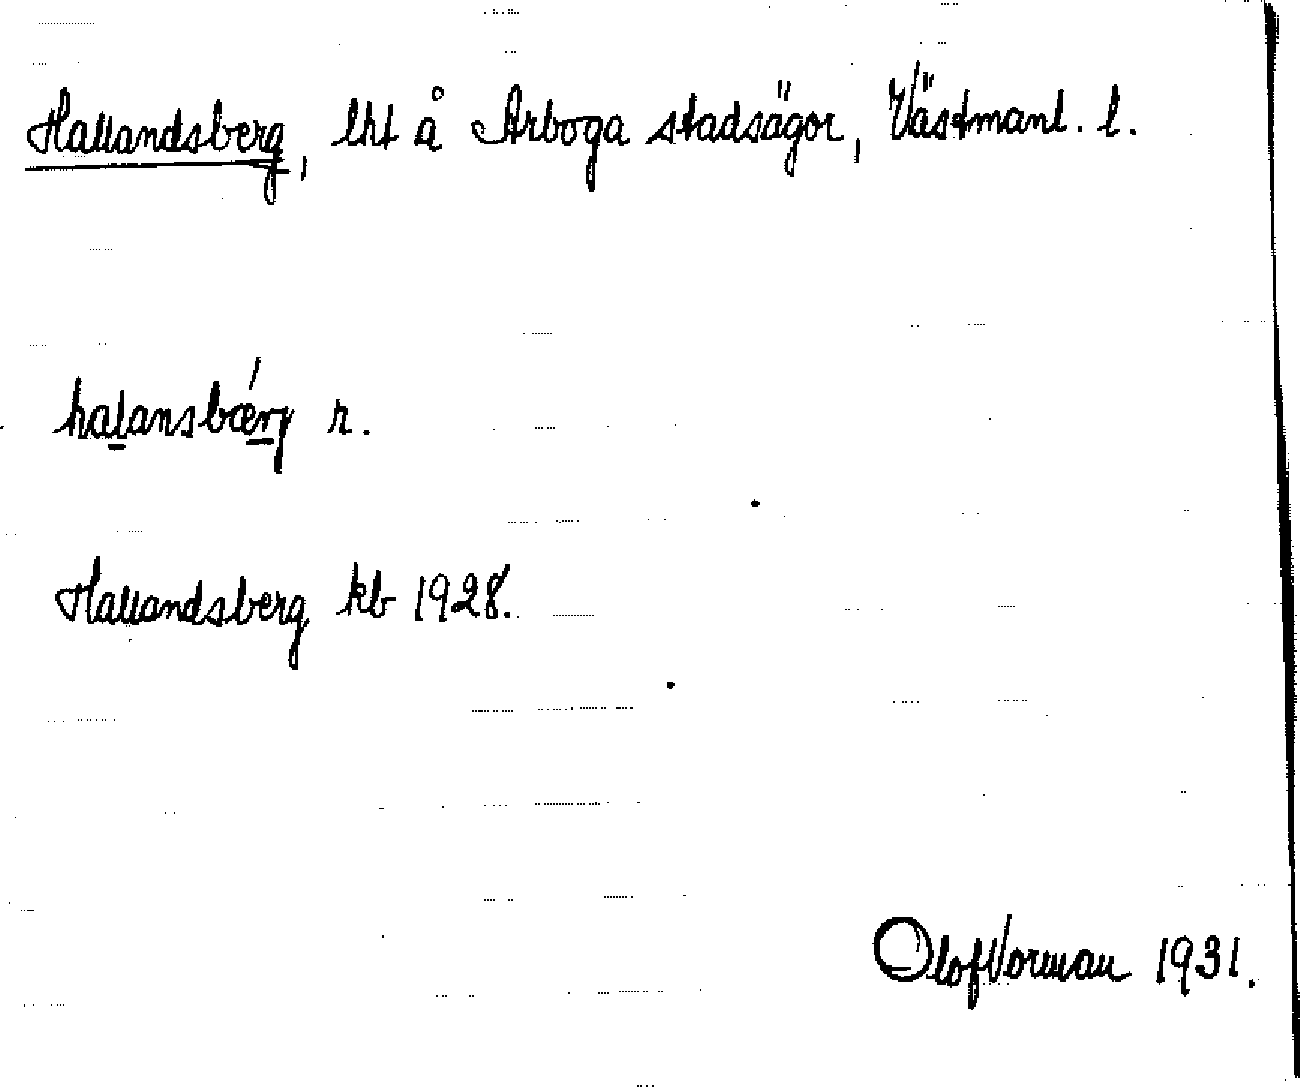 Hallandsberg, lht å Arboga stadsägor, Västmanl. l.
halansbærj n.
Hallandsberg kb 1928.
Olof Vorman 1931.